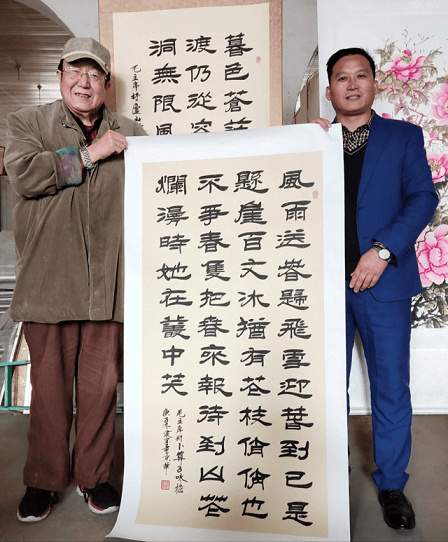 暮色蒼
渡仍從容
洞無限風
毛主席詩
風雨送春歸飛雪迎春到已是
懸崖百丈冰猶有花枝俏俏也
不爭春隻把春來報待到山花
爛漫時她在叢中笑
毛主席詞卜算子咏梅